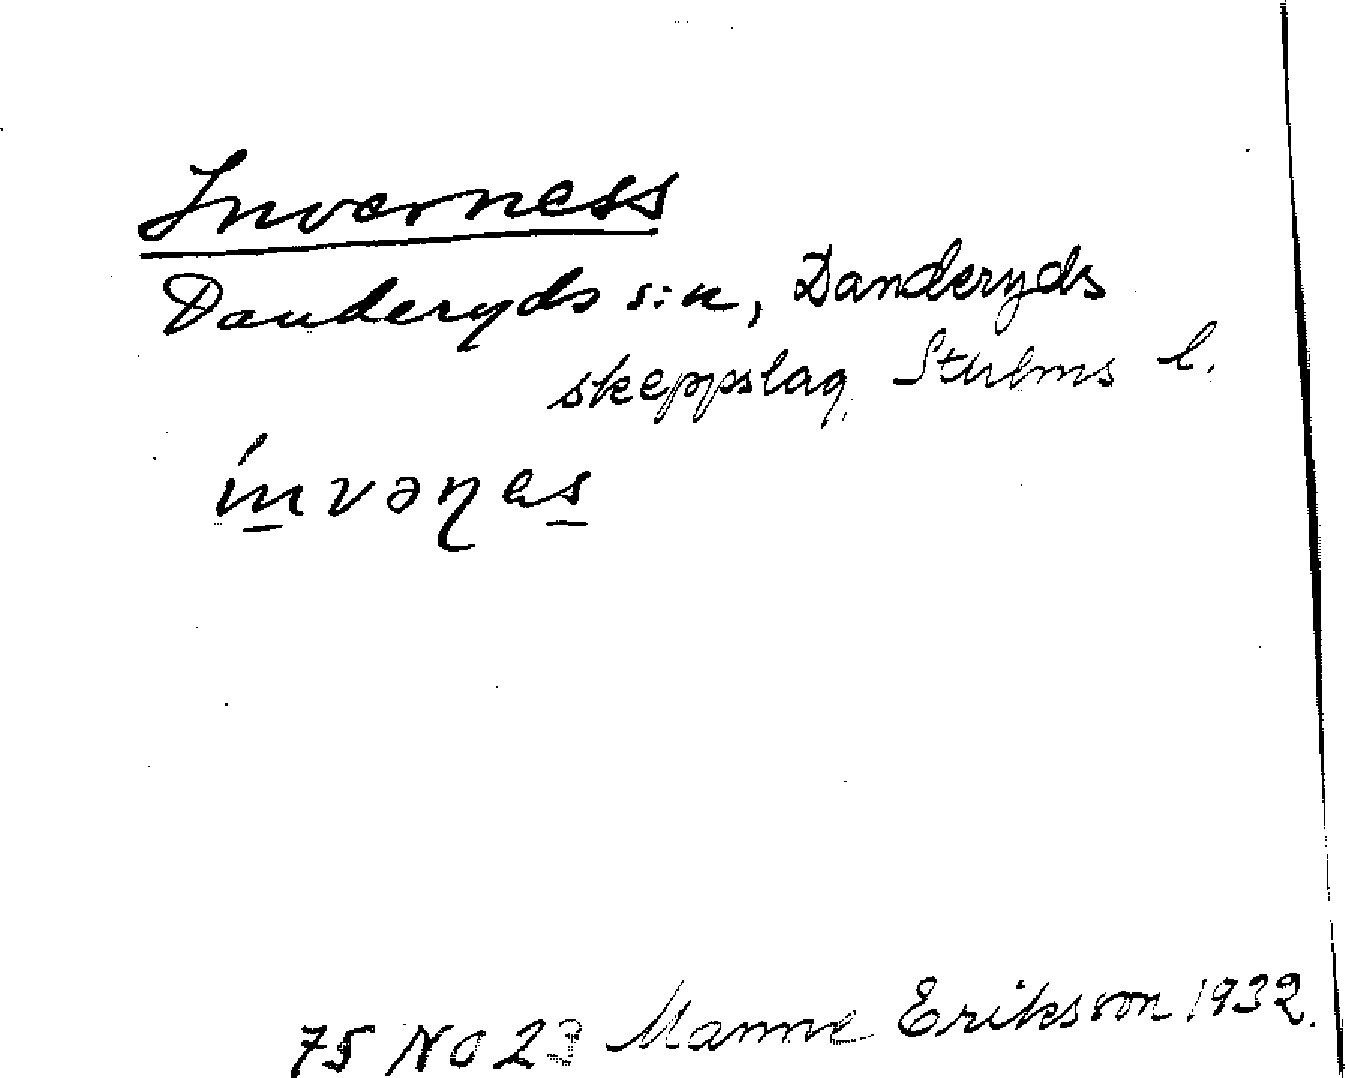 Inverness
Danderyds s:n, Danderyds
skeppslag, Sthlms l.
ínvəꞃes
75 NO 23 Manne Eriksson 1932.